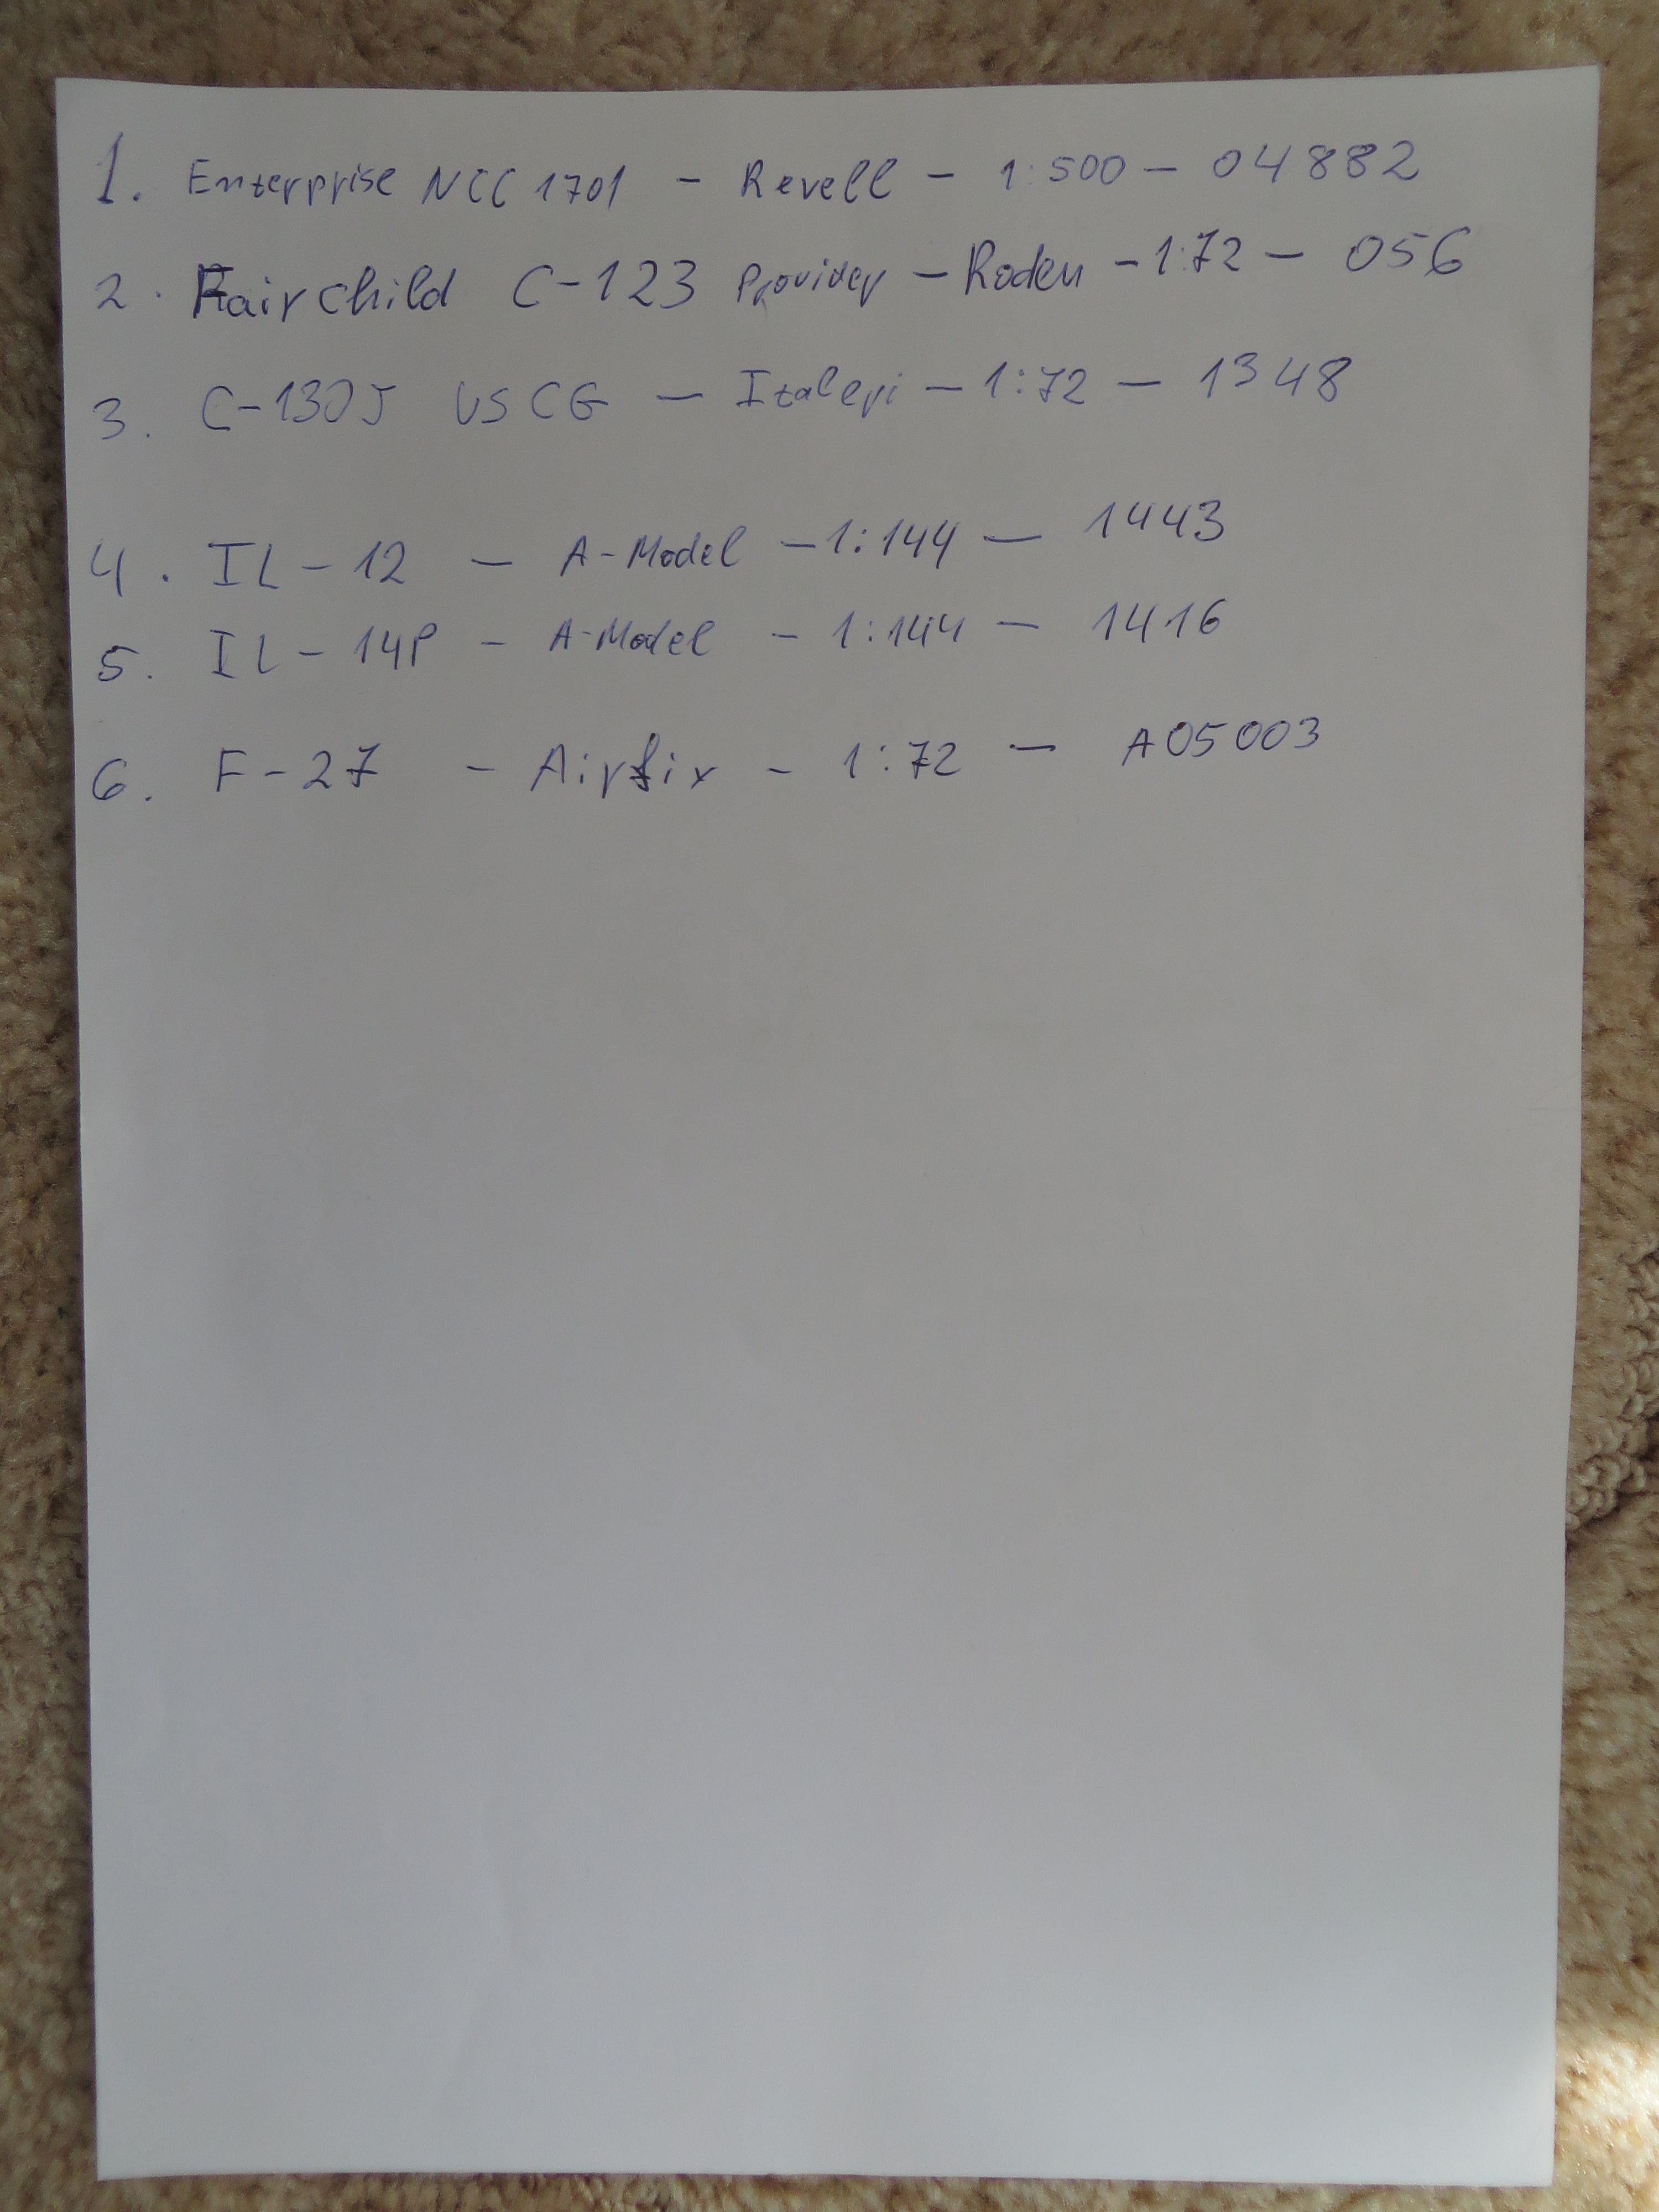 1. Enterprise NCC 1701 - Revell - 1:500 - 04882
2. Fairchild C-123 Provider - Roden - 1:72 - 056
3. C-130J USCG - Italeri - 1:72 - 1348
4. IL-12 - A-Model - 1:144 - 1443
5. IL-14P - A-Model - 1:144 - 1416
6. F-27 - Airfix - 1:72 - A05003